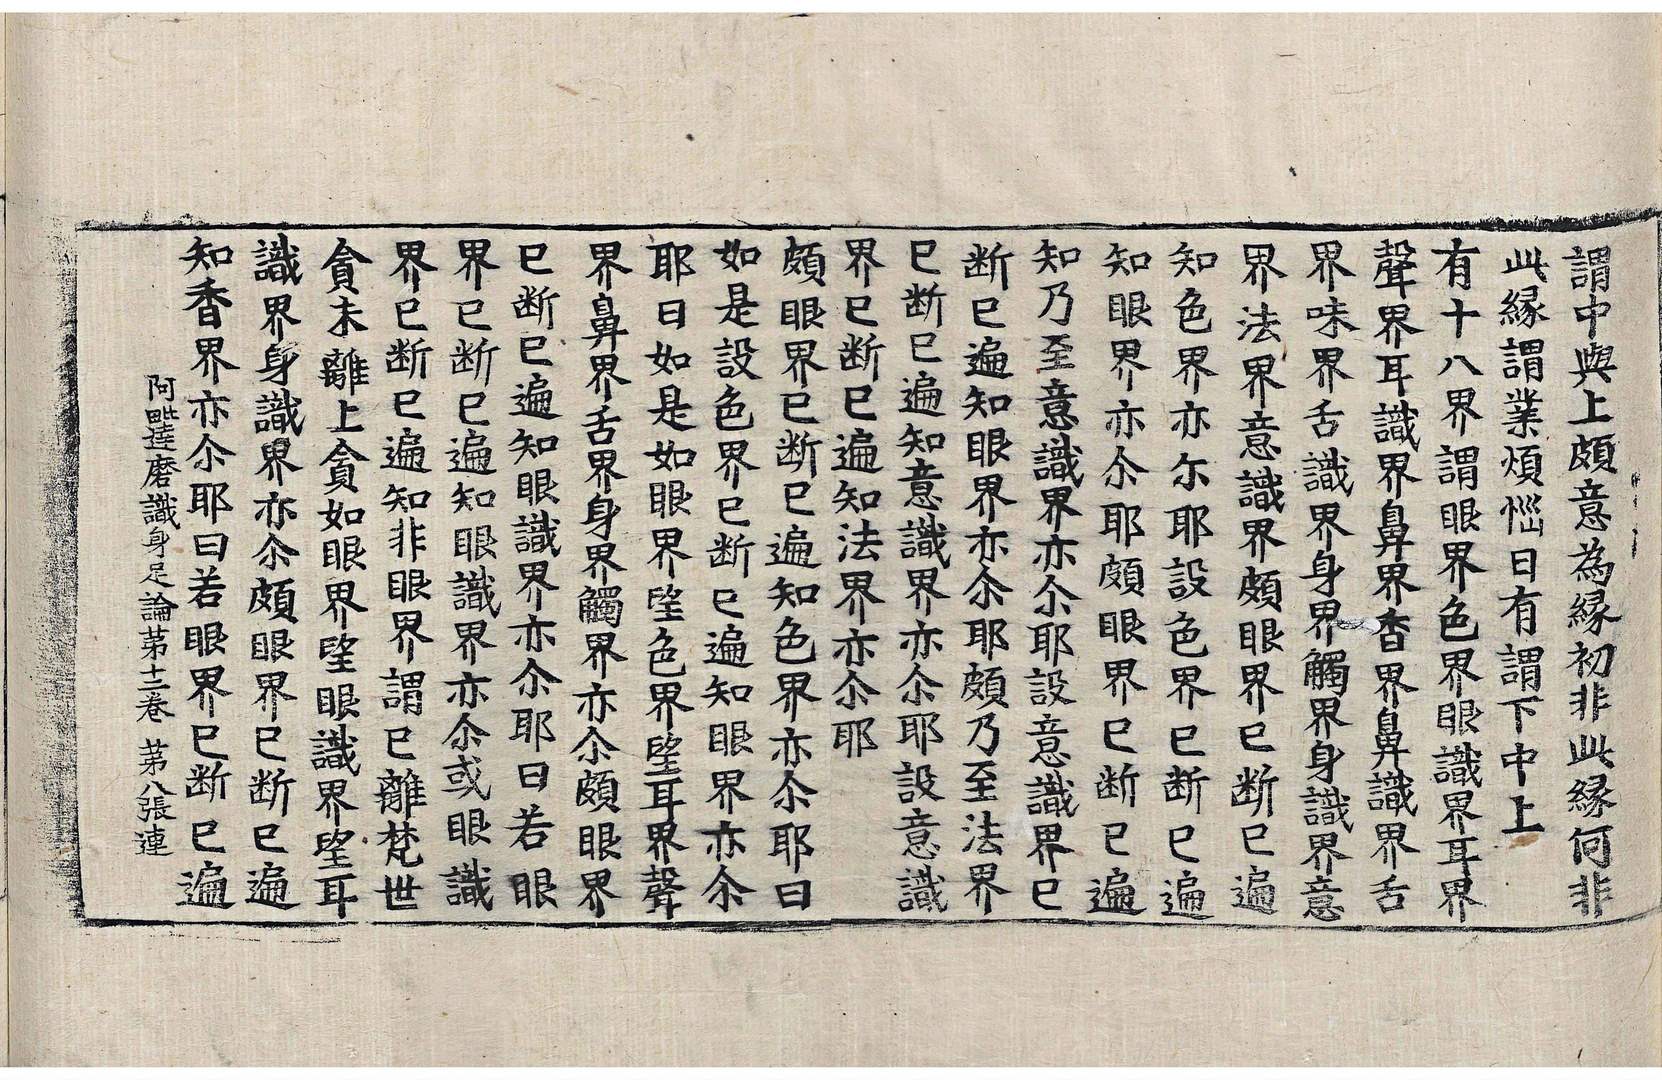 謂中與上頗意為緣初非此緣何非
此緣謂業煩惱曰有謂下中上
有十八界謂眼界色界眼識界耳界
聲界耳識界鼻界香界鼻識界舌
界味界舌識界身界觸界身識界意
界法界意識界頗眼界已断已遍
知色界亦尒耶設色界已断已遍
知眼界亦尒耶頗眼界已断已遍
知乃至意識界亦尒耶設意識界已
断已遍知眼界亦尒耶頗乃至法界
已断已遍知意識界亦尒耶設意識
界已断已遍知法界亦尒耶
頗眼界已断已遍知色界亦尒耶曰
如是設色界已断已遍知眼界亦尒
耶曰如是如眼界望色界望耳界聲
界鼻界舌界身界觸界亦尒頗眼界
已断已遍知眼識界亦尒耶曰若眼
界已断已遍知眼識界亦尒或眼識
界已断已遍知非眼界謂已離梵世
貪未離上貪如眼界望眼識界望耳
識界身識界亦尒頗眼界已断已遍
知香界亦尒耶曰若眼界已断已遍
阿毗達磨識身足論苐十二卷 苐八張 連